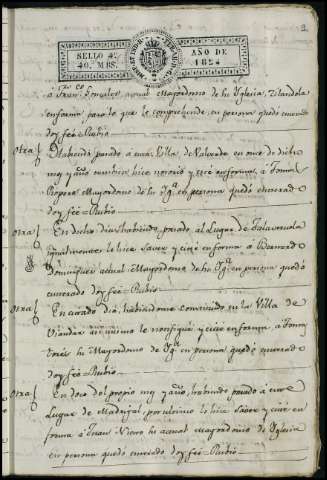 SELLO 4º
40. MRS.
AÑO DE
1824
á Franco Gonzalez, actual Mayordomo de la Yglesia, citandola
en forma para lo que le comprehende, en persona quedó enterado
doy fee = Rubio
otra Habiendo pasado á esta Villa de Valverde en once de dicho
mes y año hice notorio y cité en forma, á Tomas
Mayordomo de la Yga en persona quedó enterado
doy fee = Rubio
otra En dicho dia habiendo pasado al Lugar de Talaveruela
igualmente lo hice saver y cité en forma á Bernardo
Dominguez actual Mayordomo de ha Yga en persona quedó
enterado doy fee = Rubio
otra En citado dia habiendome constituido en la Villa de
Viandar asi mismo le notifiqué y cité en forma, á Tomas
Mayordomo de Yga en persona quedó enterado
doy fee = Rubio
otra En doce del propio mes y año, habiendo pasado á este
Lugar de Madrigal, por ultimo lo hice saver y cité en
forma á Juan actual Mayordomo de Yglesia
en persona quedó enterado doy fee = Rubio